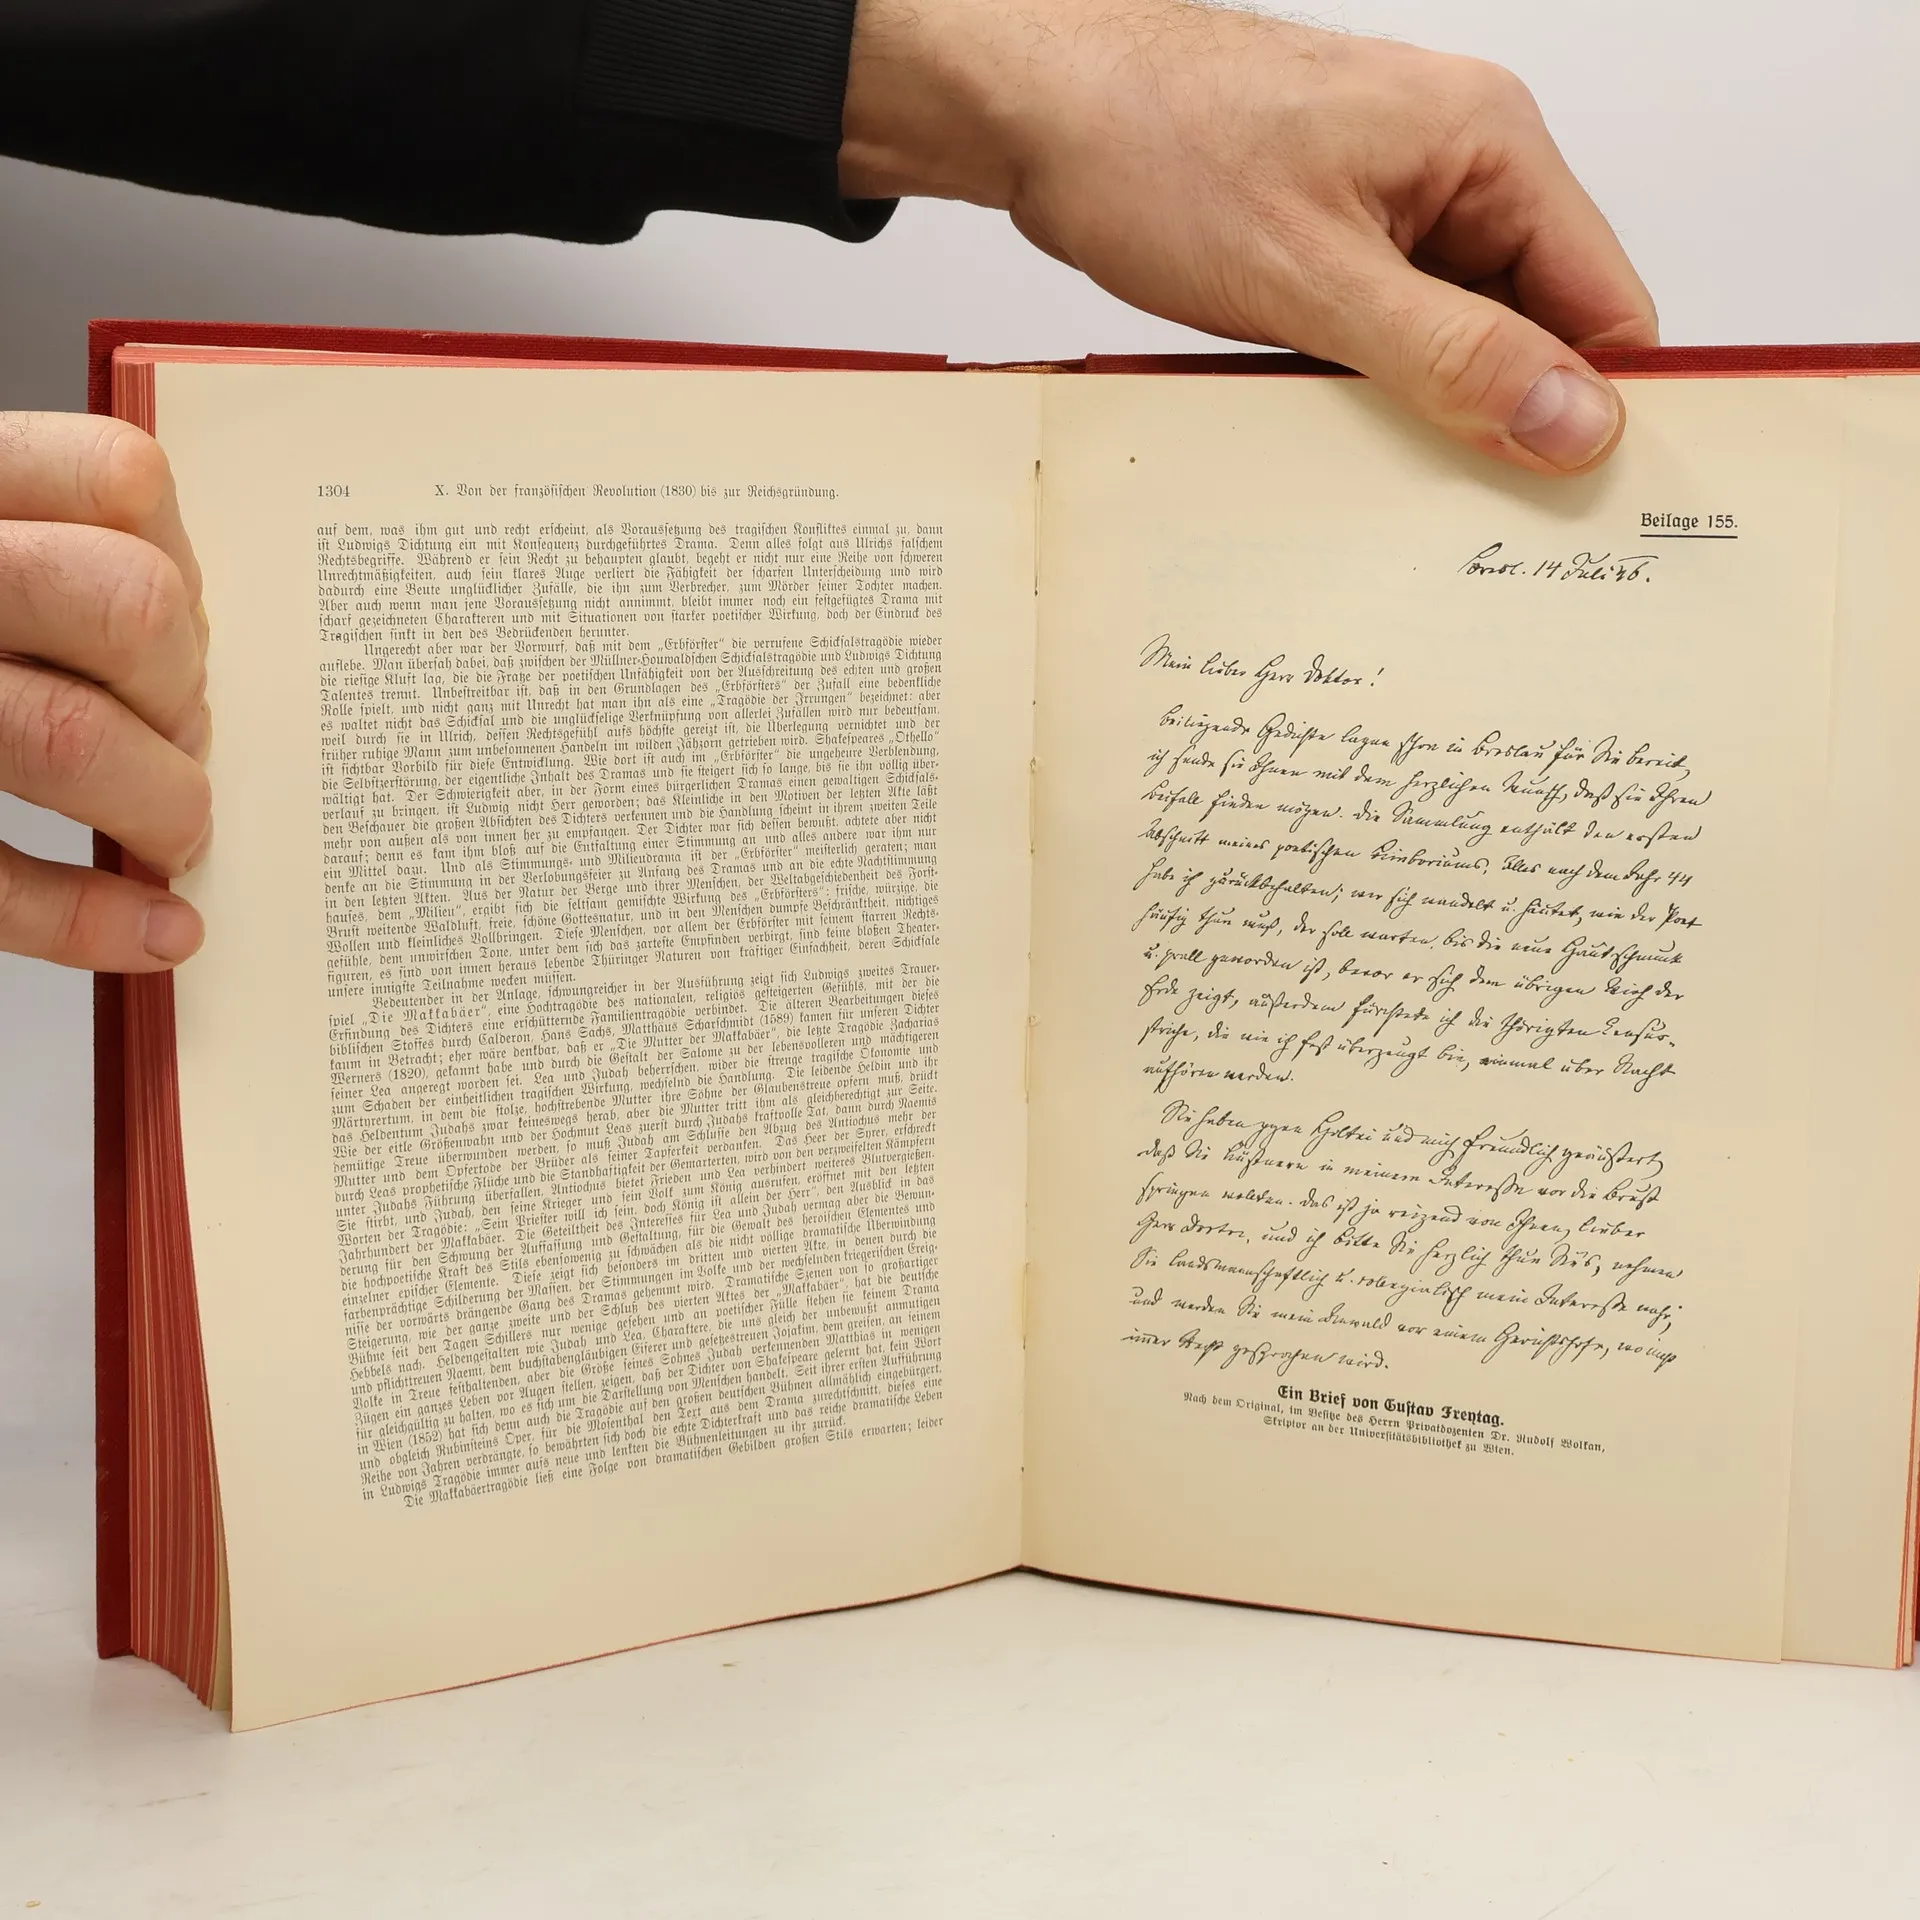 1304
X. Von der französischen Revolution (1830) bis zur Reichsgründung.
auf dem, was ihm gut und recht erscheint, als Voraussetzung des tragischen Konfliktes einmal zu, dann
ist Ludwigs Dichtung ein mit Konsequenz durchgeführtes Drama. Denn alles folgt aus Ulrichs falschem
Rechtsbegriffe. Während er sein Recht zu behaupten glaubt, begeht er nicht nur eine Reihe von schweren
Unrechtmäßigkeiten, auch sein klares Auge verliert die Fähigkeit der scharfen Unterscheidung und wird
dadurch eine Beute unglücklicher Zufälle, die ihn zum Verbrecher, zum Mörder seiner Tochter machen.
Aber auch wenn man jene Voraussetzung nicht annimmt, bleibt immer noch ein festgefügtes Drama mit
scharf gezeichneten Charakteren und mit Situationen von starker poetischer Wirkung, doch der Eindruck des
Tragischen sinkt in den des Bedrückenden herunter.
Ungerecht aber war der Vorwurf, daß mit dem „Erbförster“ die verrufene Schicksalstragödie wieder
auflebe. Man übersah dabei, daß zwischen der Müllner-Houwaldschen Schicksalstragödie und Ludwigs Dichtung
die riesige Kluft lag, die die Fratze der poetischen Unfähigkeit von der Ausschreitung des echten und großen
Talentes trennt. Unbestreitbar ist, daß in den Grundlagen des „Erbförsters“ der Zufall eine bedenkliche
Rolle spielt, und nicht ganz mit Unrecht hat man ihn als eine „Tragödie der Irrungen“ bezeichnet: aber
es waltet nicht das Schicksal und die unglückselige Verknüpfung von allerlei Zufällen wird nur bedeutsam,
weil durch sie in Ulrich, dessen Rechtsgefühl aufs höchste gereizt ist, die Überlegung vernichtet und der
früher ruhige Mann zum unbesonnenen Handeln im wilden Jähzorn getrieben wird. Shakespeares „Othello“
ist sichtbar Vorbild für diese Entwicklung. Wie dort ist auch im „Erbförster“ die ungeheure Verblendung,
die Selbstzerstörung, der eigentliche Inhalt des Dramas und sie steigert sich so lange, bis sie ihn völlig über-
wältigt hat. Der Schwierigkeit aber, in der Form eines bürgerlichen Dramas einen gewaltigen Schicksals-
verlauf zu bringen, ist Ludwig nicht Herr geworden; das Kleinliche in den Motiven der letzten Akte läßt
den Beschauer die großen Absichten des Dichters verkennen und die Handlung scheint in ihrem zweiten Teile
mehr von außen als von innen her zu empfangen. Der Dichter war sich dessen bewußt, achtete aber nicht
darauf; denn es kam ihm bloß auf die Entfaltung einer Stimmung an und alles andere war ihm nur
ein Mittel dazu. Und als Stimmungs- und Milieudrama ist der „Erbförster“ meisterlich geraten; man
denke an die Stimmung in der Verlobungsfeier zu Anfang des Dramas und an die echte Nachtstimmung
in den letzten Akten. Aus der Natur der Berge und ihrer Menschen, der Weltabgeschiedenheit des Forst-
hauses, dem „Milieu“, ergibt sich die seltsam gemischte Wirkung des „Erbförsters“: frische, würzige, die
Brust weitende Waldluft, freie, schöne Gottesnatur, und in den Menschen dumpfe Beschränktheit, nichtiges
Wollen und kleinliches Vollbringen. Diese Menschen, vor allem der Erbförster mit seinem starren Rechts-
gefühle, dem unwirschen Tone, unter dem sich das zarteste Empfinden verbirgt, sind keine bloßen Theater-
figuren, es sind von innen heraus lebende Thüringer Naturen von kräftiger Einfachheit, deren Schicksale
unsere innigste Teilnahme wecken müssen.
Bedeutender in der Anlage, schwungreicher in der Ausführung zeigt sich Ludwigs zweites Trauer-
spiel „Die Makkabäer“, eine Hochtragödie des nationalen, religiös gesteigerten Gefühls, mit der die
Erfindung des Dichters eine erschütternde Familientragödie verbindet. Die älteren Bearbeitungen dieses
biblischen Stoffes durch Calderon, Hans Sachs, Matthäus Scharschmidt (1589) kamen für unseren Dichter
kaum in Betracht; eher wäre denkbar, daß er „Die Mutter der Makkabäer“, die letzte Tragödie Zacharias
Werners (1820), gekannt habe und durch die Gestalt der Salome zu der lebensvolleren und mächtigeren
seiner Lea angeregt worden sei. Lea und Judah beherrschen, wider die strenge tragische Ökonomie und
zum Schaden der einheitlichen tragischen Wirkung, wechselnd die Handlung. Die leidende Heldin und ihr
Märtyrertum, in dem die stolze, hochstrebende Mutter ihre Söhne der Glaubenstreue opfern muß, drückt
das Heldentum Judahs zwar keineswegs herab, aber die Mutter tritt ihm als gleichberechtigt zur Seite.
Wie der eitle Größenwahn und der Hochmut Leas zuerst durch Judahs kraftvolle Tat, dann durch Naemis
demütige Treue überwunden werden, so muß Judah am Schlusse den Abzug des Antiochus mehr der
Mutter und dem Opfertode der Brüder als seiner Tapferkeit verdanken. Das Heer der Syrer, erschreckt
durch Leas prophetische Flüche und die Standhaftigkeit der Gemarterten, wird von den verzweifelten Kämpfern
unter Judahs Führung überfallen. Antiochus bietet Frieden und Lea verhindert weiteres Blutvergießen.
Sie stirbt, und Judah, den seine Krieger und sein Volk zum König ausrufen, eröffnet mit den letzten
Worten der Tragödie: „Sein Priester will ich sein, doch König ist allein der Herr“, den Ausblick in das
Jahrhundert der Makkabäer. Die Geteiltheit des Interesses für Lea und Judah vermag aber die Bewun-
derung für den Schwung der Auffassung und Gestaltung, für die Gewalt des heroischen Elementes und
die hochpoetische Kraft des Stils ebensowenig zu schwächen als die nicht völlige dramatische Überwindung
einzelner epischer Elemente. Diese zeigt sich besonders im dritten und vierten Akte, in denen durch die
farbenprächtige Schilderung der Massen, der Stimmungen im Volke und der wechselnden kriegerischen Ereig-
nisse der vorwärts drängende Gang des Dramas gehemmt wird. Dramatische Szenen von so großartiger
Steigerung, wie der ganze zweite und der Schluß des vierten Aktes der „Makkabäer“, hat die deutsche
Bühne seit den Tagen Schillers nur wenige gesehen und an poetischer Fülle stehen sie keinem Drama
Hebbels nach. Heldengestalten wie Judah und Lea, Charaktere, die uns gleich der unbewußt anmutigen
und pflichttreuen Naemi, dem buchstabengläubigen Eiferer und gesetzestreuen Jojakim, dem greisen, an seinem
Volke in Treue festhaltenden, aber die Größe seines Sohnes Judah verkennenden Matthias in wenigen
Zügen ein ganzes Leben vor Augen stellen, zeigen, daß der Dichter von Shakespeare gelernt hat, kein Wort
für gleichgültig zu halten, wo es sich um die Darstellung von Menschen handelt. Seit ihrer ersten Aufführung
in Wien (1852) hat sich denn auch die Tragödie auf den großen deutschen Bühnen allmählich eingebürgert,
und obgleich Rubinsteins Oper, für die Mosenthal den Text aus dem Drama zurechtschnitt, dieses eine
Reihe von Jahren verdrängte, so bewährten sich doch die echte Dichterkraft und das reiche dramatische Leben
in Ludwigs Tragödie immer aufs neue und lenkten die Bühnenleitungen zu ihr zurück.
Die Makkabäertragödie ließ eine Folge von dramatischen Gebilden großen Stils erwarten; leider
Beilage 155.
14 Juli 46.
Mein lieber Herr Doktor!
Beiliegende Gedichte lagen schon in Breslau für Sie bereit,
ich sende sie Ihnen mit dem herzlichen Wunsch, daß sie Ihren
Beifall finden mögen. Die Sammlung enthält den ersten
Abschnitt meines poetischen Alles nach dem Jahr 44
habe ich zurückbehalten; wer sich wandelt u. häutet, wie der Poet
häufig thun muß, der soll warten, bis die neue Haut schmuck
u. prall geworden ist, bevor er sich dem übrigen Vieh der
Erde zeigt, außerdem fürchtete ich die thörigten Censur-
striche, die wie ich fest überzeugt bin, einmal über Nacht
aufhören werden.
Sie haben gegen Holtei und mich freundlich geäußert,
daß Sie Küstnern in meinem Interesse vor die Brust
springen wollten. Das ist ja reizend von Ihnen, lieber
Herr Doctor, und ich bitte Sie herzlich thun Sie's, nehmen
Sie landsmannschaftlich u. collegialisch mein Interesse wahr,
und werden Sie mein Anwald vor einem Gerichtshofe, wo
immer Recht gesprochen wird.
Ein Brief von Gustav Freytag.
Nach dem Original, im Besitze des Herrn Privatdozenten Dr. Rudolf Wolkan,
Skriptor an der Universitätsbibliothek zu Wien.